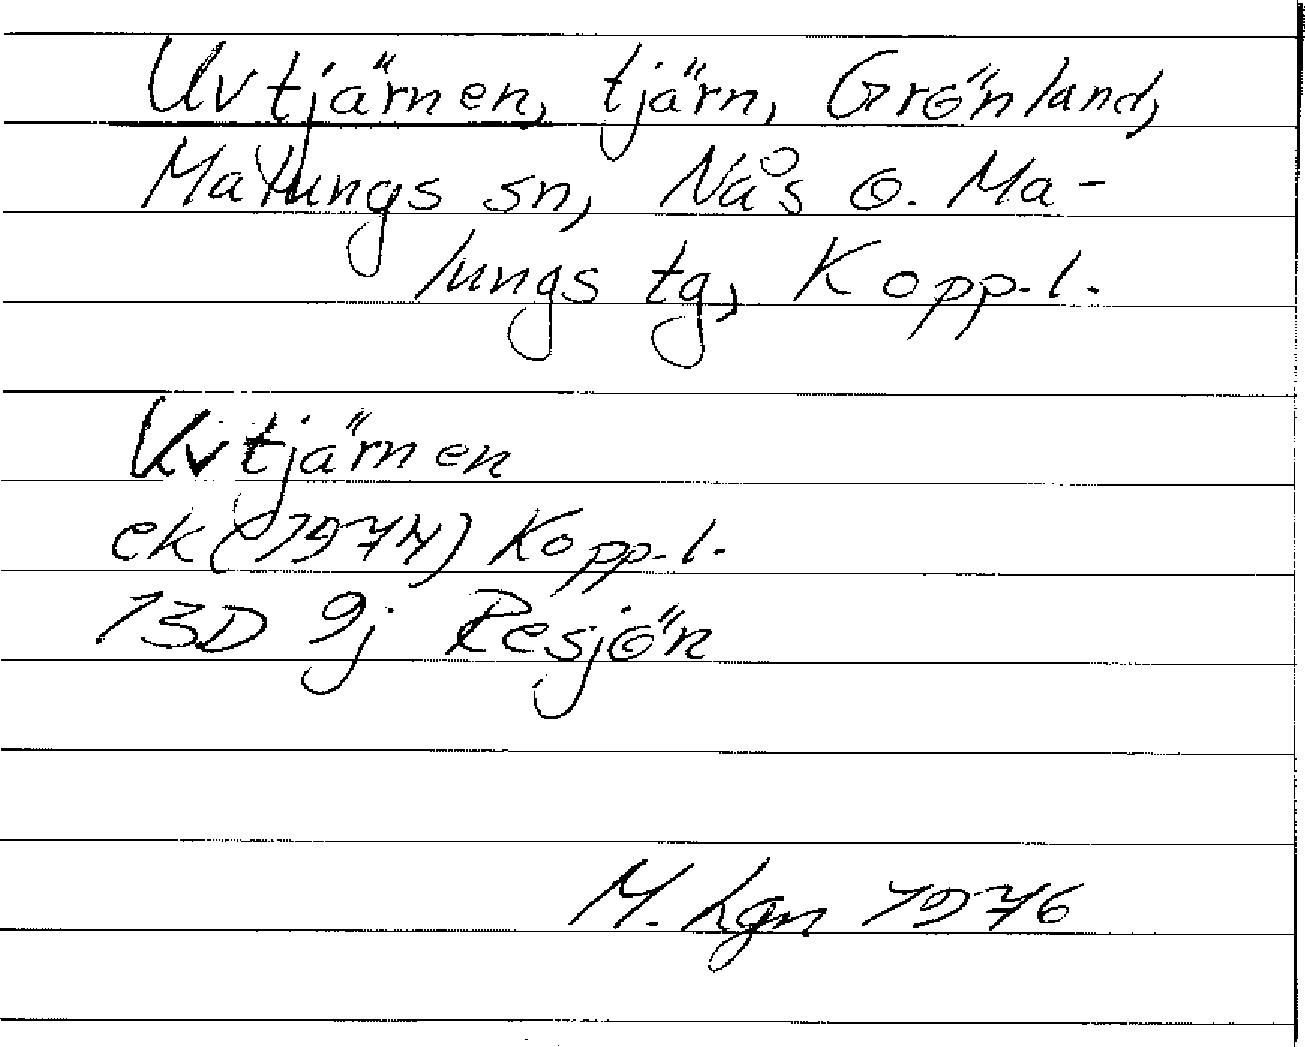 Uvtjärnen, tjärn, Grönland,
Malungs sn, Nås o. Ma-
lungs tg, Kopp.l.
Uvtjärnen
ek (1974) Kopp.l.
13D 9j Resjön
M. Lgn 1976